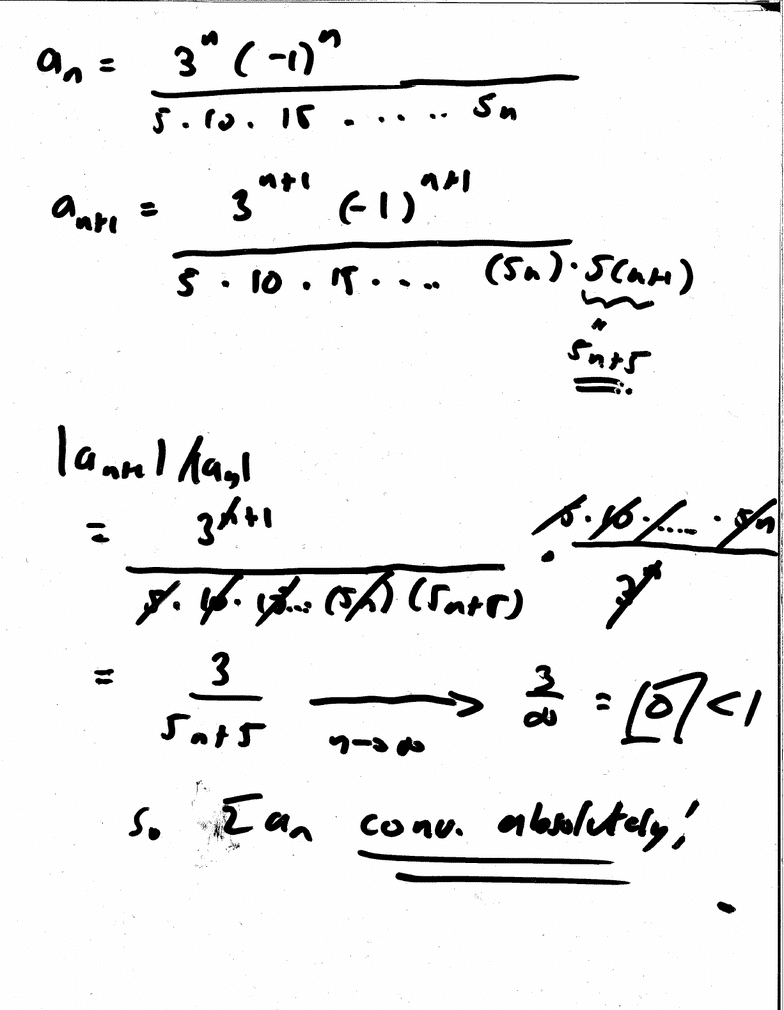 aₙ = 3ⁿ (-1)ⁿ
5 · 10 · 15 · · · · · 5n
aₙ₊₁ = 3ⁿ⁺¹ (-1)ⁿ⁺¹
5 · 10 · 15 · · · · (5n) · 5(n+1)
"
5n+5
|aₙ₊₁| / |aₙ|
= 3ⁿ⁺¹ / 5 · 10 · 15 ... (5n) (5n+5) · 5 · 10 · ..... · 5n / 3ⁿ
= 3 / 5n+5 → n→∞ 3/∞ = 0 < 1
So Σ aₙ conv. absolutely!